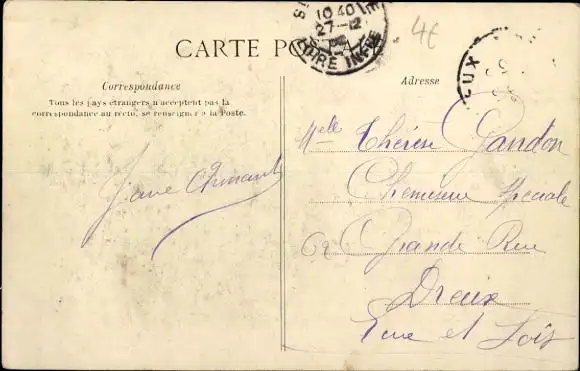 10 40
27-12
LOIRE INFRE
4€
CARTE POSTALE
Correspondance
Tous les pays étrangers n'acceptent pas la
correspondance au recto, se renseigner à la Poste.
Adresse
UX
Melle Thérèse Gandon
Chemiserie Spéciale
62 Grande Rue
Dreux
Eure et Loir